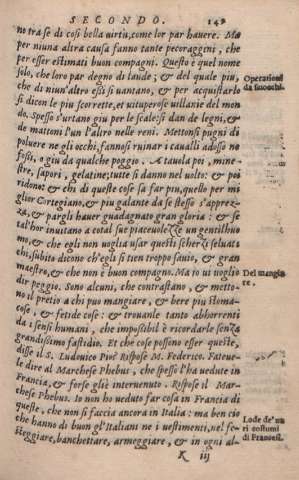 SECONDO. 149
no tra se di così bella virtù, come lor par hauere. Ma
per niuna altra causa fanno tante pecoraggini, che
per esser estimati buon compagni. Questo è quel nome
solo, che loro par degno di laude; & del quale piu,
che di niun'altro essi si vantano, & per acquistarlo
si dicon le piu scorrette, et vituperose uillanie del mon
do. Spesso s'urtano giu per le scale: si dan de legni, &
de mattoni l'un l'altro nelle reni. Mettonsi pugni di
poluere ne gli occhi, fannosi ruinar i caualli adosso ne
fossi, o giu da qualche poggio. A tauola poi, mine-
stre, sapori, gelatine; tutte si danno nel uolto: & poi
ridono: & chi di queste cose sa far piu, quello per mi
glior Cortegiano, & piu galante da se stesso s'apprez-
za, & pargli hauer guadagnato gran gloria: & se
tal'hor inuitano a cotal sue piaceuolezze un gentilhuo
mo, & che egli non uoglia usar questi scherzi seluati
chi, subito dicono ch'egli si tien troppo sauio, & gran
maestro, & che non è buon compagno. Ma io ui uoglio
dir peggio. Sono alcuni, che contrastano, & metto-
no il pretio a chi puo mangiare, & bere piu stoma-
cose, & fetide cose: & trouanle tanto abhorrenti
da i sensi humani, che impossibil è ricordarle senza
grandissimo fastidio. Et che cose possono esser queste,
disse il S. Ludouico Pio? Rispose M. Federico. Fateue-
le dire al Marchese Phebus, che spesso l'ha vedute in
Francia, & forse gliè interuenuto. Rispose il Mar-
chese Phebus. Io non ho veduto far cosa in Francia di
queste, che non si faccia ancora in Italia: ma ben ciò
che hanno di buon gl'Italiani ne i vestimenti, nel fe-
steggiare, banchettare, armeggiare, & in ogni al-
K iij
Operationi
da sciocchi.
Del mangia
re.
Lode de'
costumi
di Francesi.